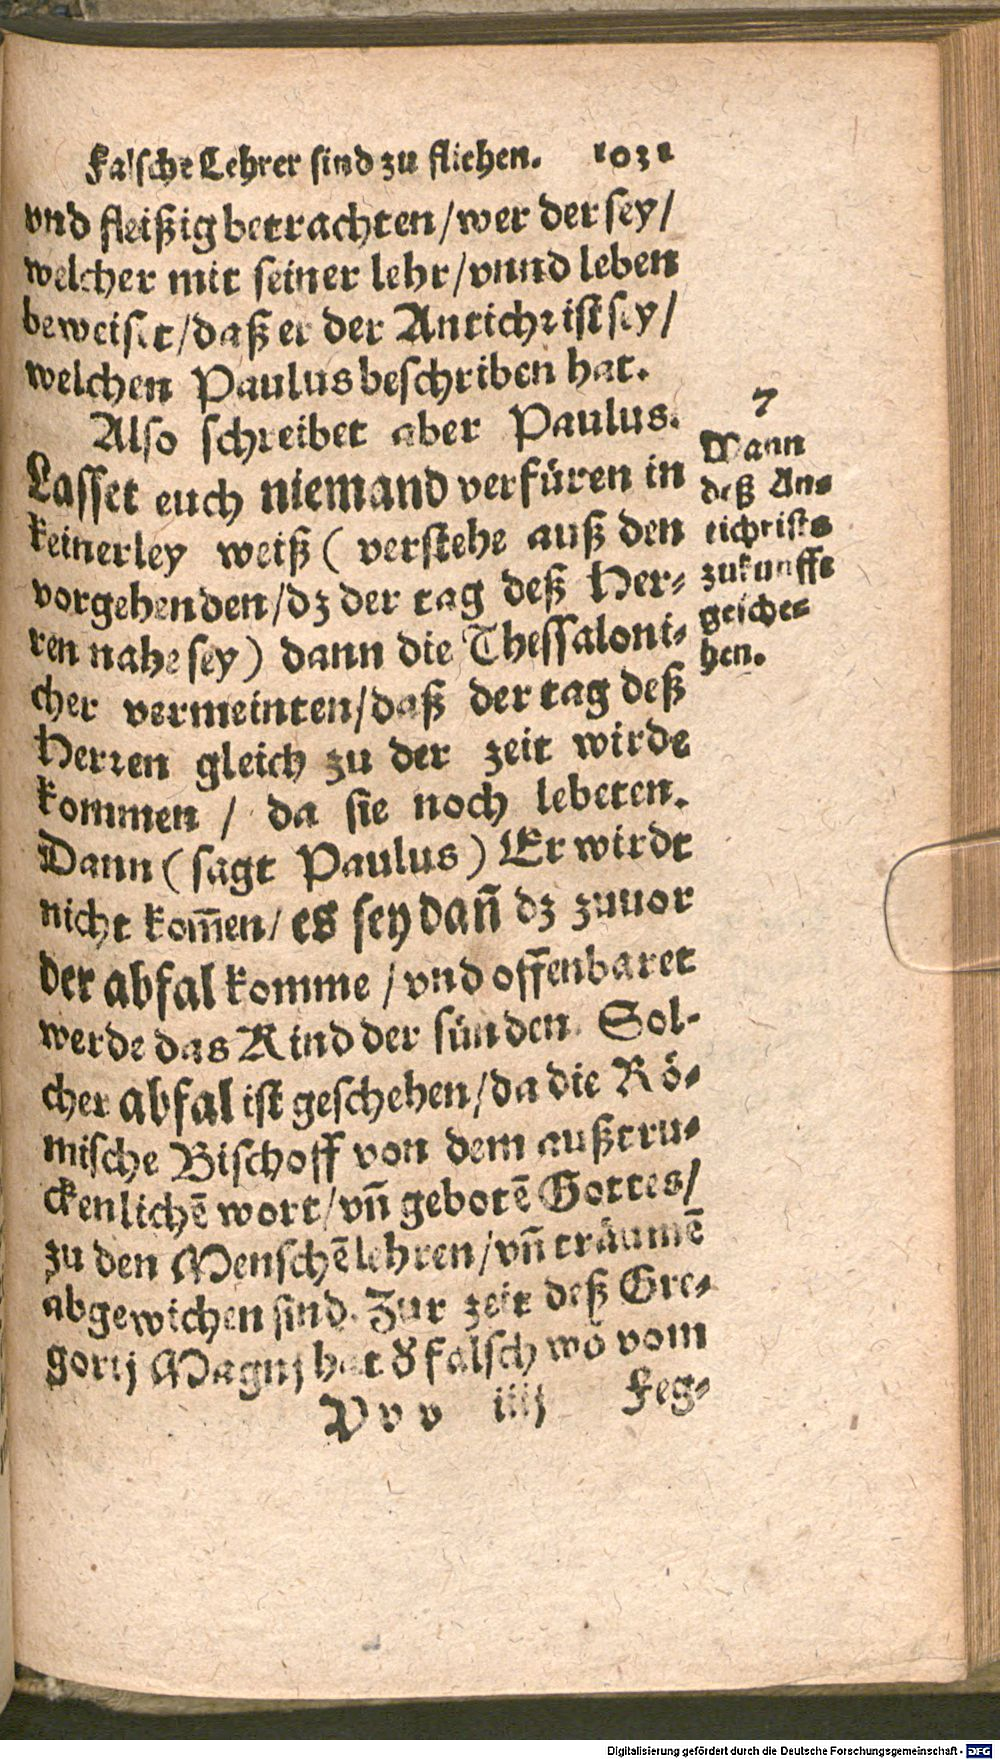 Falsche Lehrer sind zu fliehen. 1031
vnd fleißig betrachten/wer der sey/
welcher mit seiner lehr/vnnd leben
beweiset/daß er der Antichrist sey/
welchen Paulus beschriben hat.
Also schreibet aber Paulus.
Lasset euch niemand verfüren in
keinerley weiß ( verstehe auß den
vorgehenden/dz der tag deß Her-
ren nahe sey) dann die Thessaloni-
cher vermeinten/daß der tag deß
Herren gleich zu der zeit wirde
kommen / da sie noch lebeten.
Dann ( sagt Paulus ) Er wirdt
nicht kom̃en/ es sey dañ dz zuuor
der abfal komme / vnd offenbaret
werde das Kind der sünden. Sol-
cher abfal ist geschehen/da die Rö-
mische Bischoff von dem außtru-
ckenlichẽ wort/vñ gebotẽ Gottes/
zu den Menschẽlehren/vñ träumẽ
abgewichen sind. Zur zeit deß Gre-
gorij Magnj hat d falsch wo vom
Pvv iiij Feg-
7
Wann
deß An-
tichrists
zukunfft
gesche-
hen.
Digitalisierung gefördert durch die Deutsche Forschungsgemeinschaft - DFG